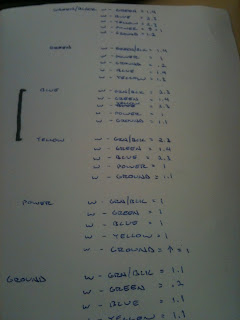 GREEN/BLACK W - GREEN = 1.9
W - BLUE = 2.3
W - YELLOW = 2.3
W - POWER = 1
W - GROUND = 1.2
GREEN W - GREEN/BLK = 1.9
W - POWER = 1
W - GROUND = .2
W - BLUE = 1.9
W - YELLOW = 1.9
BLUE W - GRN/BLK = 2.3
W - GREEN = 1.9
W - YELLOW = 2.3
W - POWER = 1
W - GROUND = 1.1
YELLOW W - GRN/BLK = 2.3
W - GREEN = 1.9
W - BLUE = 2.3
W - POWER = 1
W - GROUND = 1.1
POWER W - GRN/BLK = 1
W - GREEN = 1
W - BLUE = 1
W - YELLOW = 1
W - GROUND = ↑ = 1
GROUND W - GRN/BLK = 1.1
W - GREEN = .2
W - BLUE = 1.1
W - YELLOW = 1.1